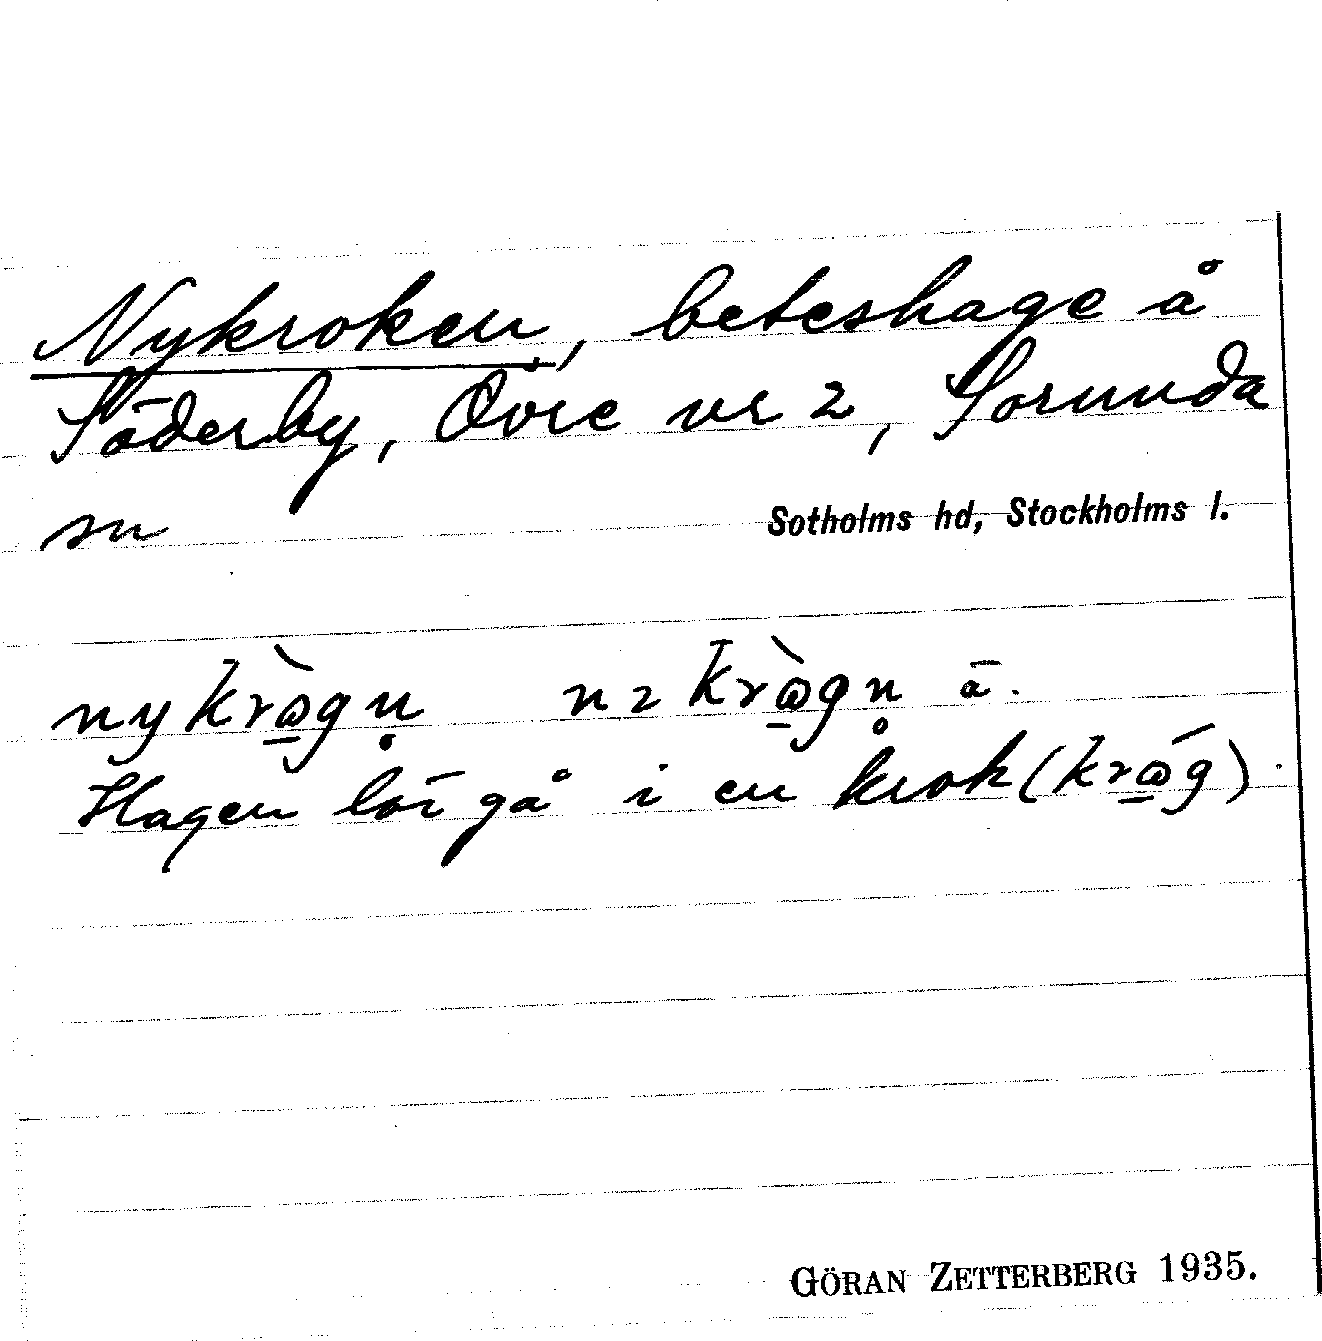 Nykroken, beteshage å
Söderby, Övre nr 2, Sorunda
sn
Sotholms hd, Stockholms l.
nykrὼgṇ nɿkrὼgn̥ ā.
Hagen lör gå i en krok (krώg).
GÖRAN ZETTERBERG 1935.